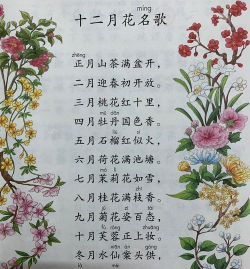 十二月花名歌
正月山茶满盆开，
二月迎春初开放。
三月桃花红十里，
四月牡丹国色香。
五月石榴红似火，
六月荷花满池塘。
七月茉莉花如雪，
八月桂花满枝香。
九月菊花姿百态，
十月芙蓉正上妆。
冬月水仙案头供，